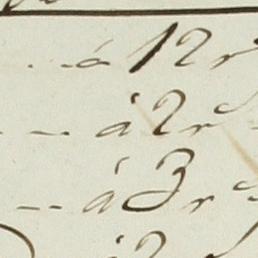 á 12 r
á 2 r
á 3 r
á 2